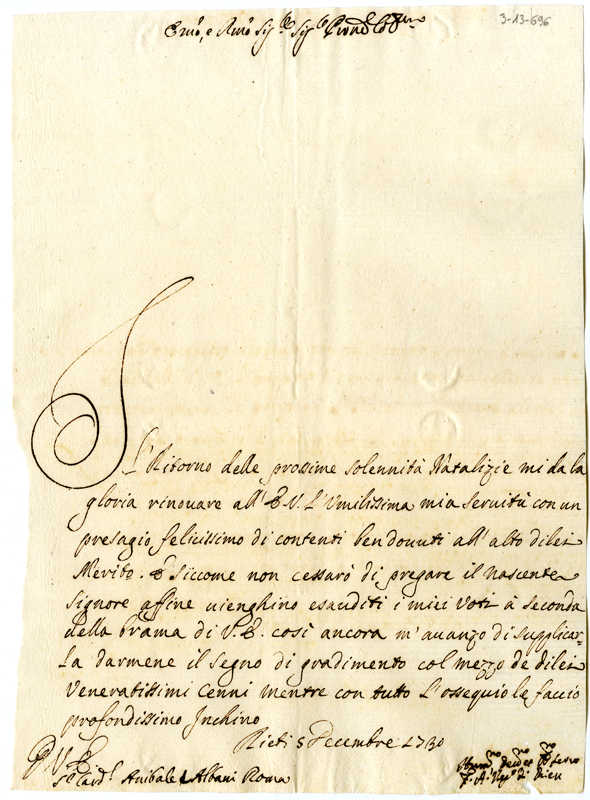 3-13-696
Em̃o, e Rm̃o Sig.re Sig.re Pron̄e Col.mo
Il Ritorno delle prossime solennità Natalizie mi da la
gloria rinouare all' E.V. L'Vmilissima mia seruitù con un
presagio felicissimo di contenti ben douuti all' alto di lei
Merito. E siccome non cessarò di pregare il nascente
Signore affine uienghino esauditi i miei Voti à seconda
della brama di V.E. così ancora m'auanzo di supplicar=
la darmene il segno di gradimento col mezzo de di lei
Veneratissimi Cenni mentre con tutto L'ossequio le faccio
profondissimo Inchino
Rieti 5 Decembre 1730
D V E
Sig.r Card.l Anibale Albani Roma
Um.mo
F. A. Vesc.o di Rieti